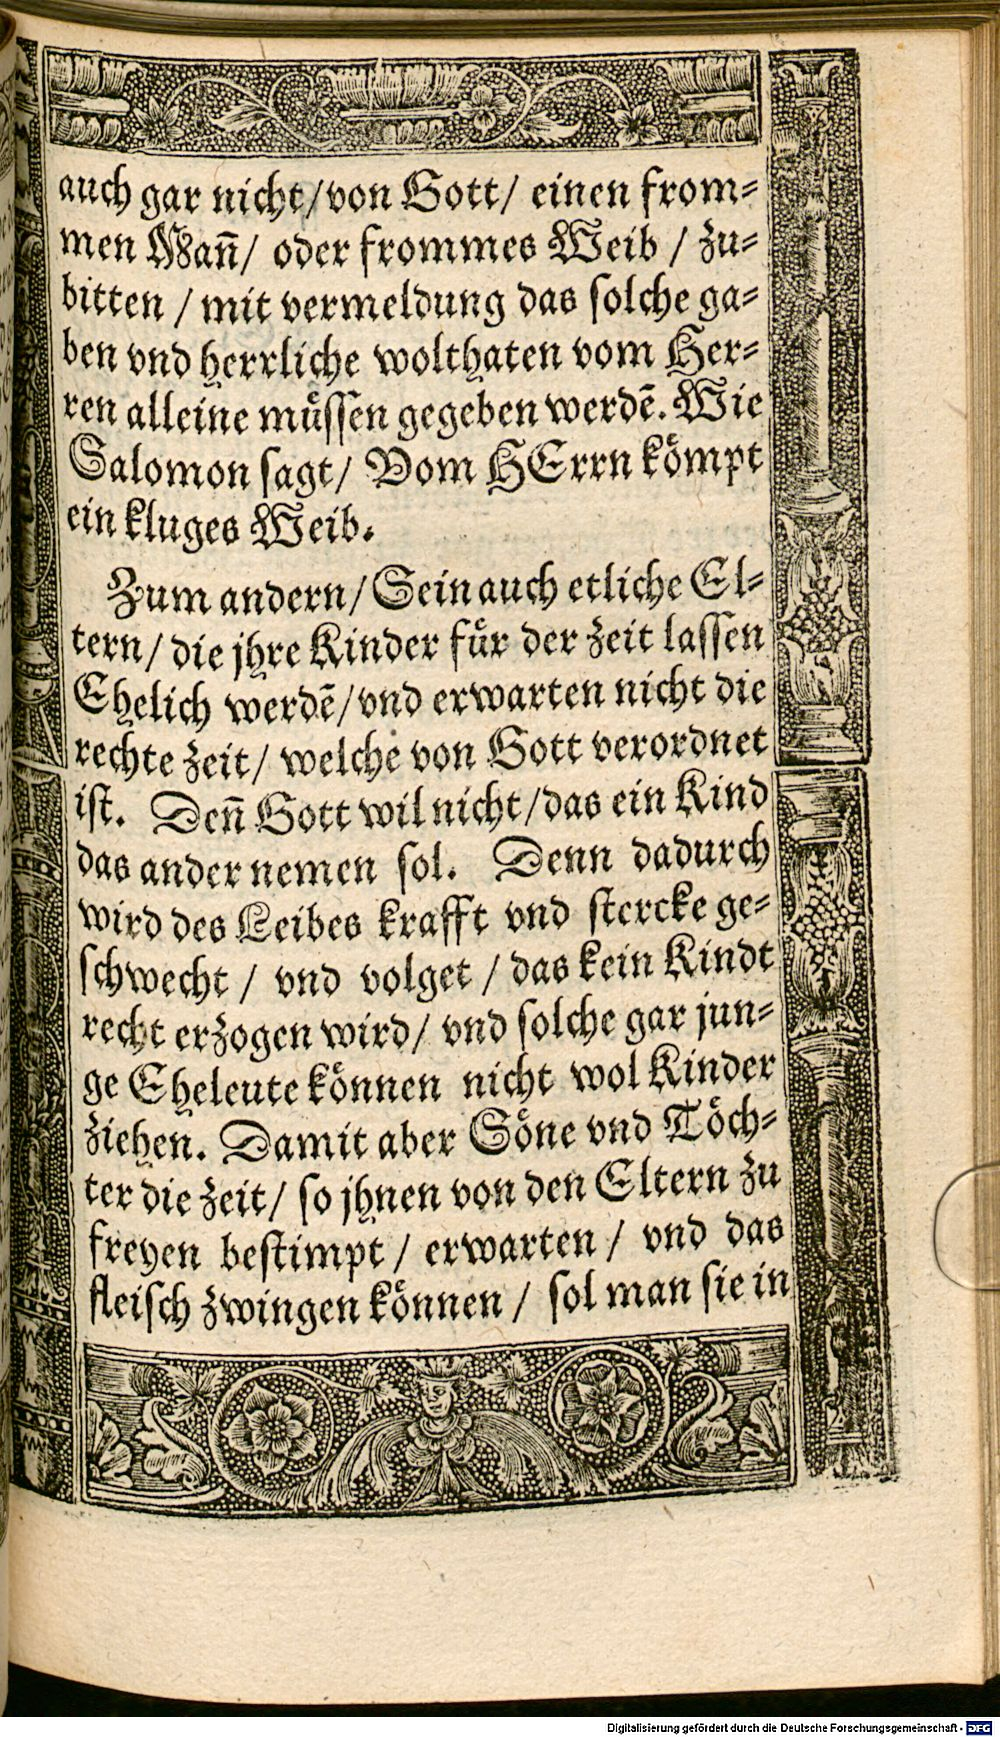 auch gar nicht/von Gott/ einen from⸗
men Mañ/ oder frommes Weib / zu⸗
bitten / mit vermeldung das solche ga⸗
ben vnd herrliche wolthaten vom Her⸗
ren alleine müssen gegeben werdē. Wie
Salomon sagt/ Vom HErrn kömpt
ein kluges Weib.
Zum andern/ Sein auch etliche El⸗
tern/ die jhre Kinder für der zeit lassen
Ehelich werdē/vnd erwarten nicht die
rechte zeit/ welche von Gott verordnet
ist. Deñ Gott wil nicht/das ein Kind
das ander nemen sol. Denn dadurch
wird des Leibes krafft vnd stercke ge⸗
schwecht / vnd volget / das kein Kindt
recht erzogen wird/ vnd solche gar jun⸗
ge Eheleute können nicht wol Kinder
ziehen. Damit aber Söne vnd Töch⸗
ter die zeit/ so jhnen von den Eltern zu
freyen bestimpt / erwarten / vnd das
fleisch zwingen können / sol man sie in
Digitalisierung gefördert durch die Deutsche Forschungsgemeinschaft - DFG